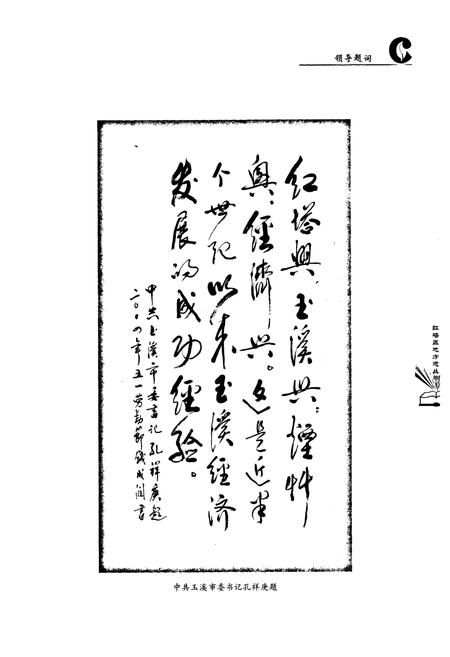 领导题词
红塔興,玉溪興;煙艸
興,經濟興。这是近半
个世纪以来玉溪经济
发展的成功經验。
中共玉溪市委书记孔祥庚题
二〇〇四年五一劳动節
红塔区地方志丛书
中共玉溪市委书记孔祥庚题